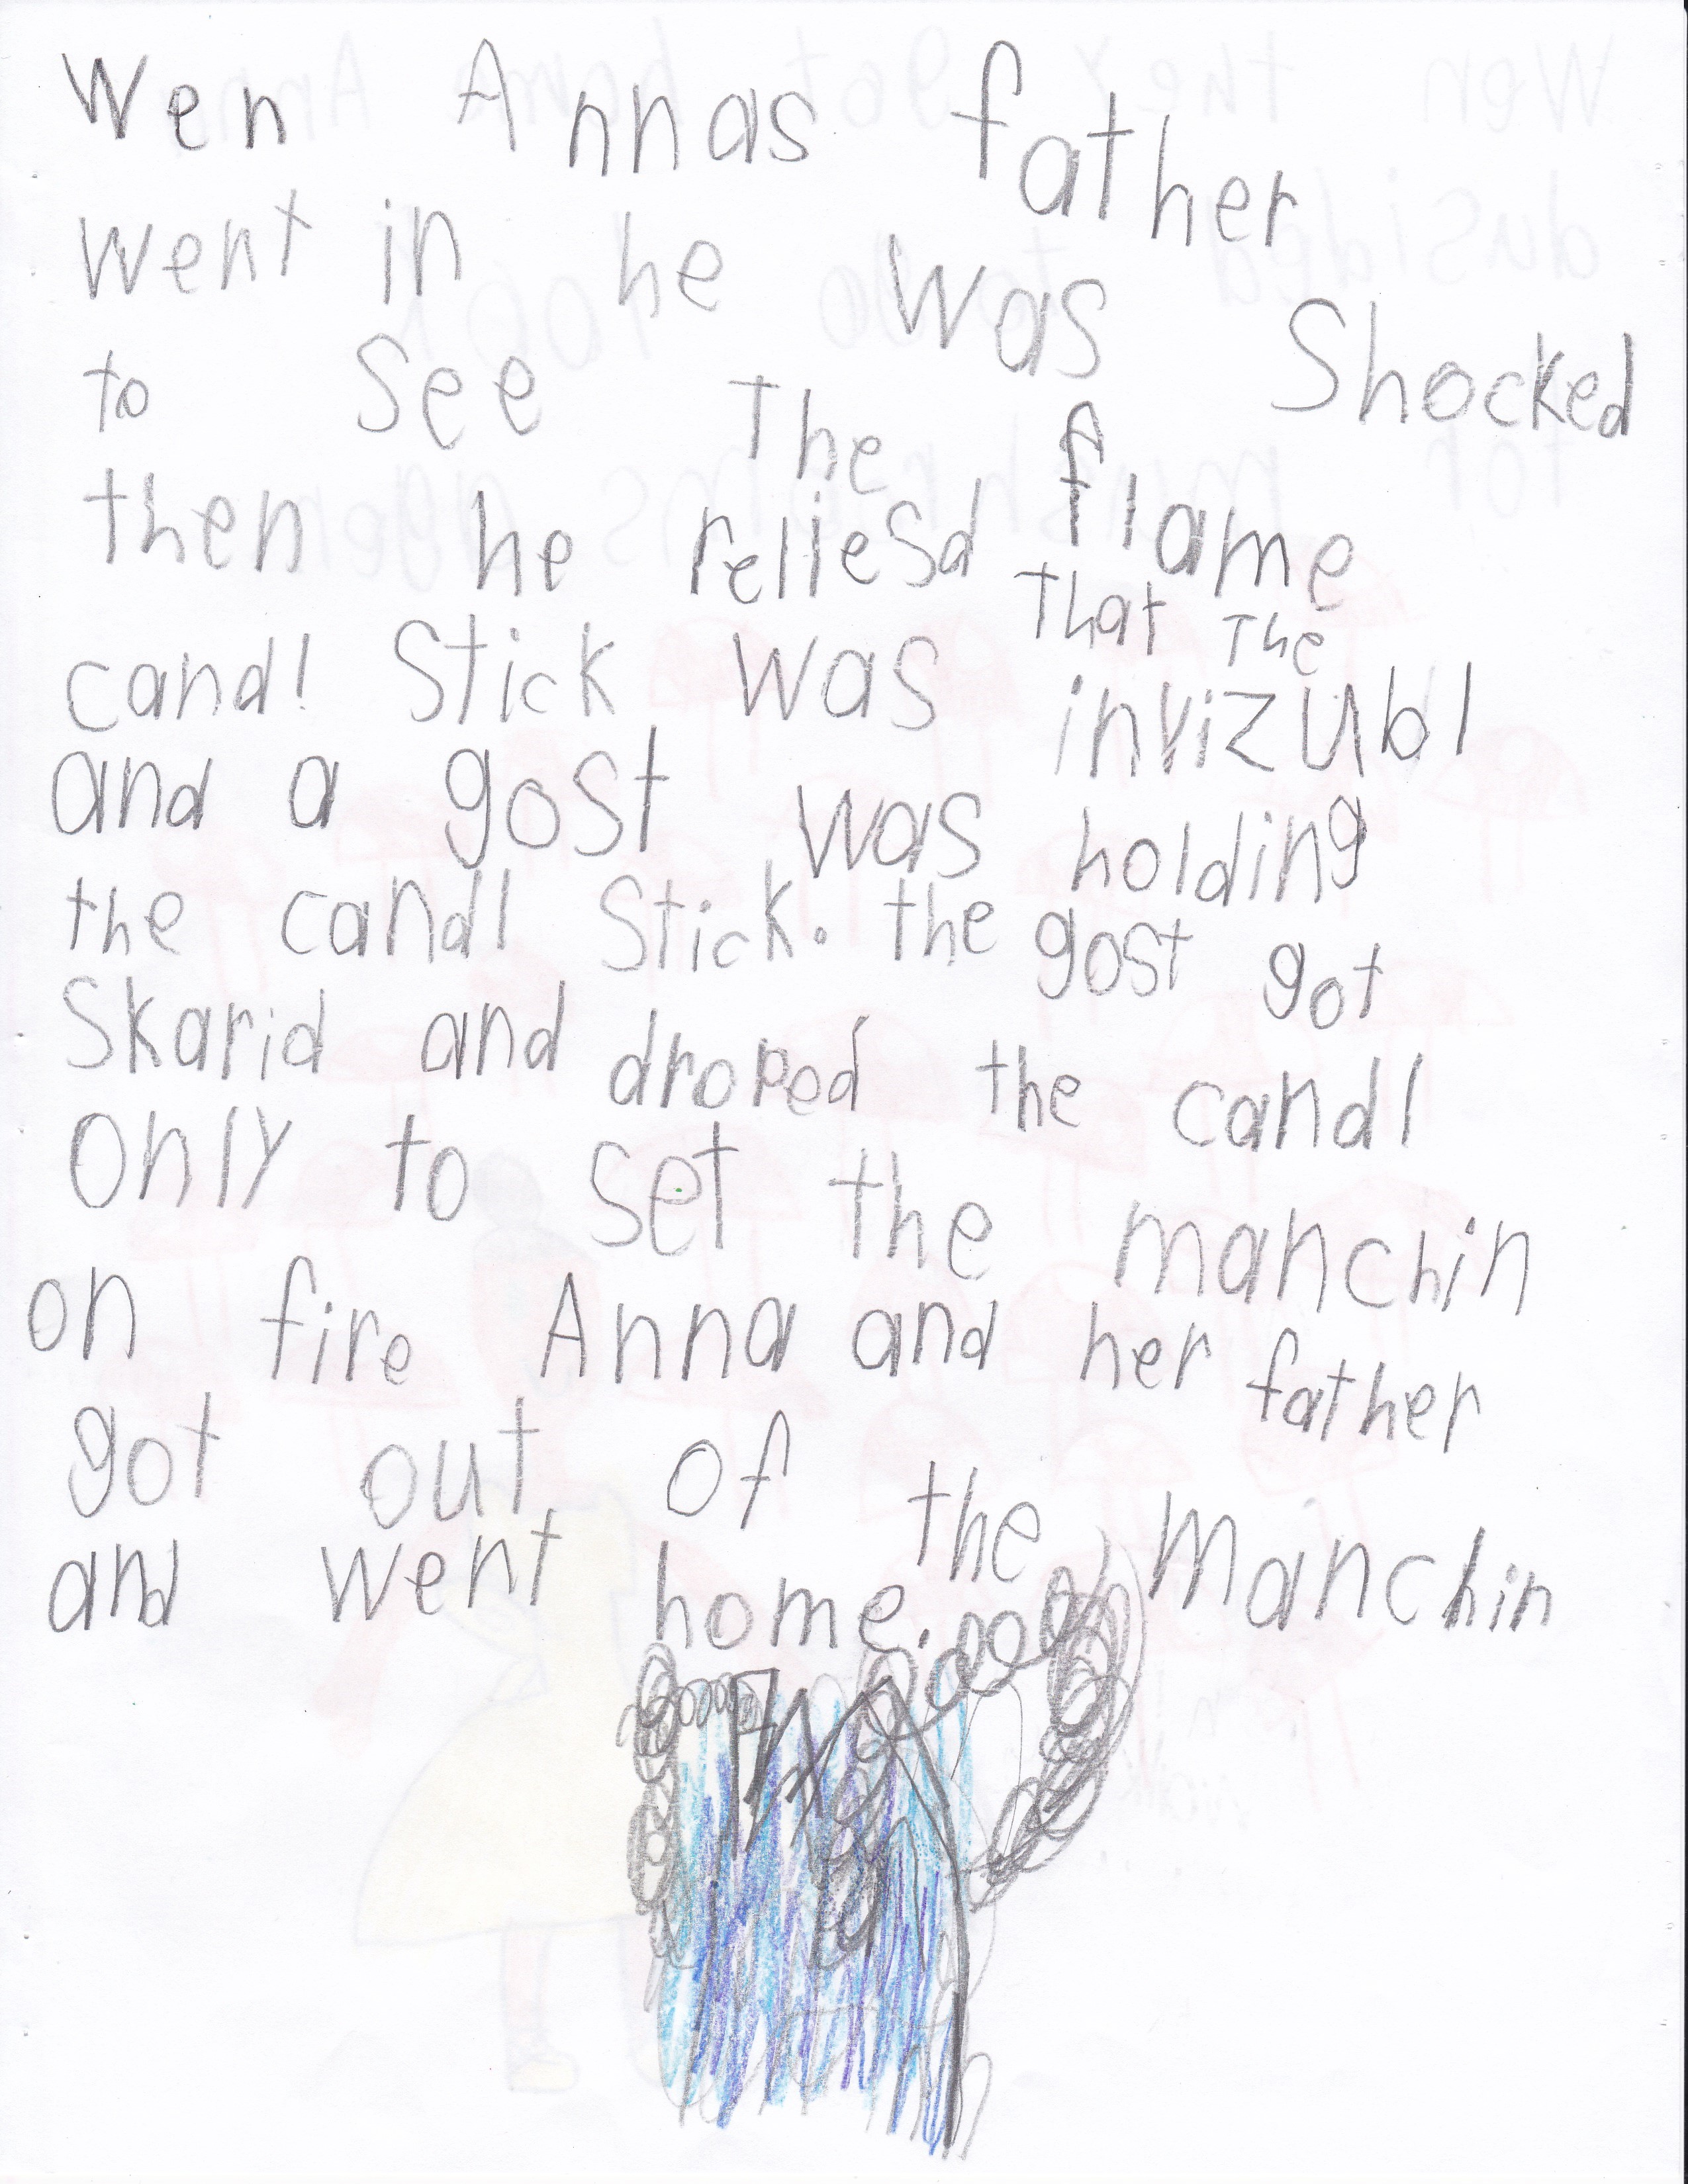 Wen Annas father
went in he was Shocked
to See The flame
then he reliesd that the
candl Stick was invizubl
and a gost was holding
the candl Stick. the gost got
Skarid and droped the candl
only to set the manchin
on fire Anna and her father
got out of the manchin
and went home.